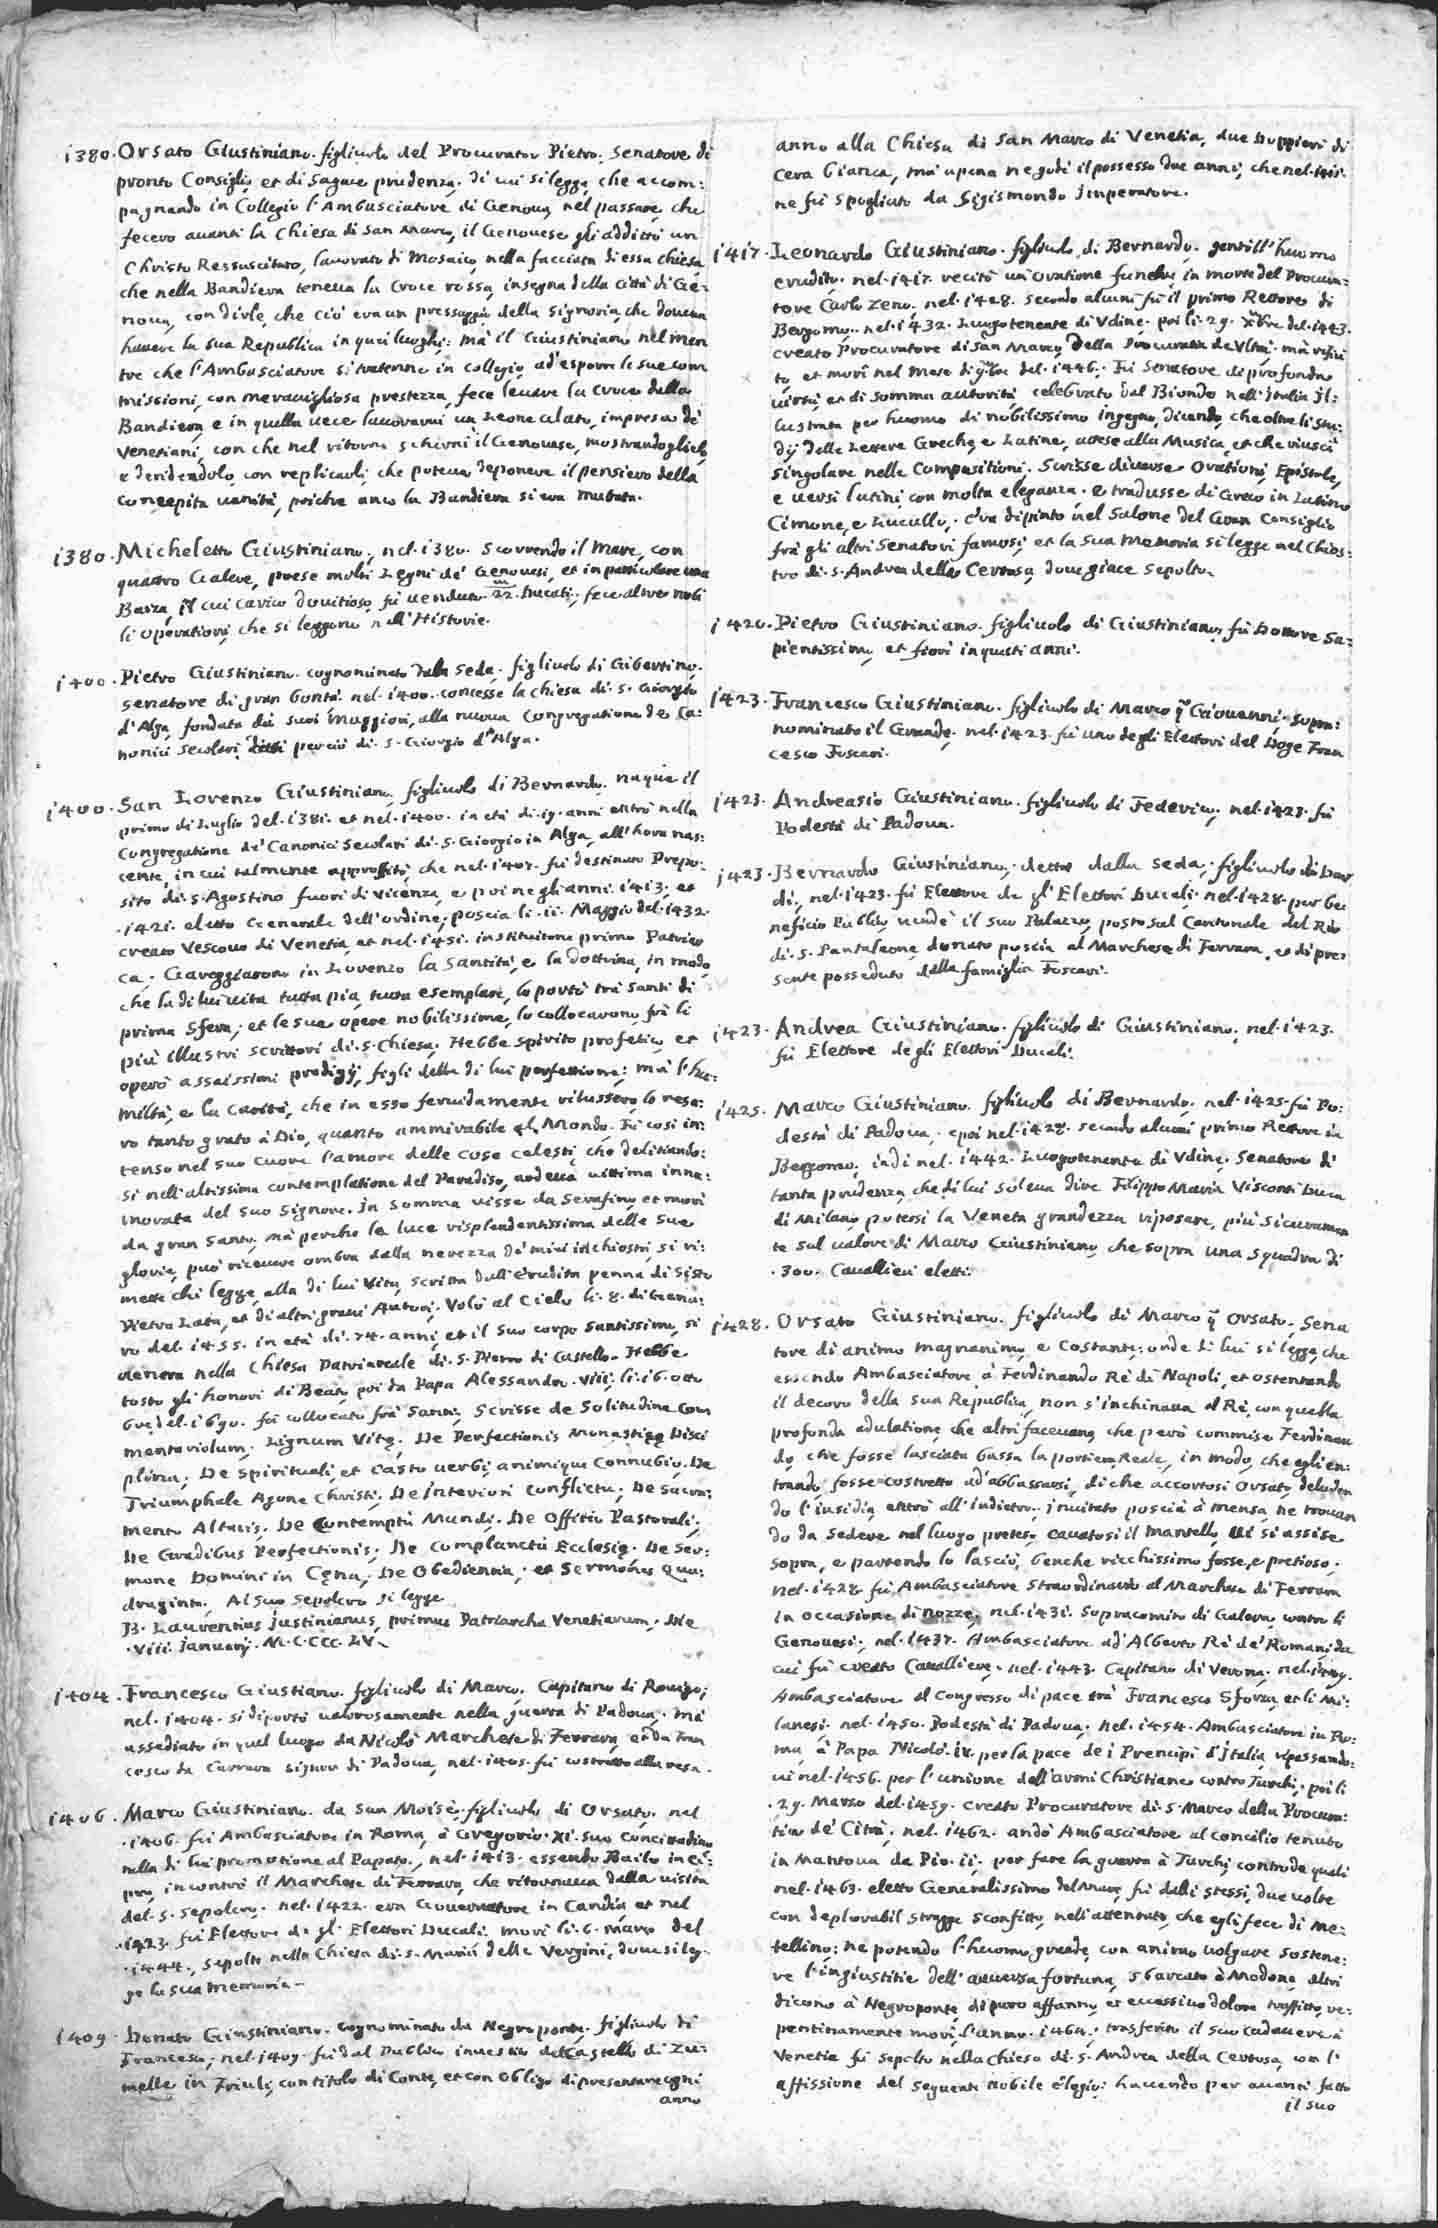 1380. Orsato Giustiniano. figliuolo del Procurator Pietro. Senatore di
pronto Consiglio, et di Sagace prudenza. di cui si legge, che accom:
pagnando in Collegio l'Ambasciatore di Genoua, nel passare, che
fecero auanti la Chiesa di San Marco, il Genouese gli additò un
Christo Ressuscitato, lauorato di Mosaico, nella facciata di essa chiesa,
che nella Bandiera teneua la Croce rossa, insegna della città di Ge:
noua, con dirle, che ciò era un pressaggio della Signoria, che doueua
hauere la sua Republica in quei luoghi: mà il Giustiniano nel men
tre che l'Ambasciatore si trattenne in collegio, ad esporre le sue com
missioni, con merauigliosa prestezza, fece leuare la Croce dalla
Bandiera, e in quella uece lauorarui un Leone alato, impresa de'
Venetiani, con che nel ritorno schernì il Genouese, mostrandoglielo,
e deridendolo, con replicarli, che poteua deponere il pensiero della
concepita uanità, poiche anco la Bandiera si era mutata.
1380. Micheletto Giustiniano, nel. 1380. scorrendo il Mare, con
quattro Galere, prese molti Legni de' Genouesi, et in particolare una
Barza, il cui carico douitioso, fù uenduto 22. Ducati, fece altre nobi
li operationi, che si leggono nell'Historie.
1400. Pietro Giustiniano. cognominato dalla Seda. figliuolo di Gibertino.
senatore di gran bontà. nel. 1400. concesse la chiesa di. S. Giorgio
d'Alga, fondata dai suoi Maggiori, alla nuoua Congregatione de Ca:
nonici Secolari, detti perciò di. S. Giorgio d'Alga.
1400. San Lorenzo Giustiniano, figliuolo di Bernardo. naque il
primo di Luglio del. 1381. et nel. 1400. in età di. 19. anni entrò nella
Congregatione de' Canonici Secolari di. S. Giorgio in Alga, all'hora nas:
cente, in cui talmente approfittò, che nel. 1407. fù destinato Prepo:
sito di. S. Agostino fuori di Vicenza, e poi negli anni. 1413. et
.1421. eletto Generale dell'ordine, poscia li. 11. Maggio del. 1432.
creato Vescouo di Venetia, et nel. 1451. institutione primo Patriar
ca. Gareggiarono in Lorenzo la Santità, e la dottrina, in modo,
che la di lui uita tutta pia, tutta esemplare, lo portò trà santi di
prima Sfera, et le sue opere nobilissime, lo collocarono frà li
più illustri scrittori di. S. Chiesa. Hebbe spirito profetico, et
operò assaissimi prodigij, figli della di lui perfettione; mà l'hu:
miltà, e la Carità, che in esso feruidamente rilussero, lo rese:
ro tanto grato à Dio, quanto ammirabile al Mondo. Fù così in:
tenso nel suo cuore l'amore delle cose celesti, che delitiando:
si nell'altissima contemplatione del Paradiso, ardeua uittima inna:
morata del suo Signore. In somma uisse da Serafino, et morì
da gran Santo, mà perche la luce risplendentissima delle sue
glorie, può riceuere ombra dalla nerezza de' miei inchiostri, si ri:
mette chi legge, alla di lui Vita, scritta dall'erudita penna di Sisto
Pietro Lata, et di altri graui Autori. Volò al Cielo li. 8. di Genna:
ro del. 1455. in età di. 74. anni, et il suo corpo santissimo, si
uenera nella Chiesa Patriarcale di. S. Pietro di Castello. Hebbe
tosto gli honori di Beato, poi da Papa Alessandro. VIII. li. 16. otto
bre del. 1690. fù collocato frà Santi. Scrisse de Solitudine Com
mentariolum. Lignum Vitę. De Perfectionis Monasticę Disci
plina. De Spirituali, et Casto uerbi, animiquę Connubio. De
Triumphale Agone Christi. De Interiori Conflictu. De Sacra:
mento Altaris. De Contemptù Mundi. De Offitio Pastorali.
De Gradibus Perfectionis. De Complanctù Ecclesię. De Ser:
mone Domini in Cęna. De Obedientia. et Sermones Qua:
draginta. Al suo Sepolcro si legge
B. Laurentius Justinianus, primus Patriarcha Venetiarum. Die
.VIII. Januarij. M.CCCC.LV.
1404. Francesco Giustiano. figliuolo di Marco. Capitano di Rouigo;
nel. 1404. si diportò ualorosamente nella guerra di Padoua. mà
assediato in quel luogo da Nicolò Marchese di Ferrara, et da Fran
cesco da Carrara Signor di Padoua, nel. 1405. fù costretto alla resa.
1406. Marco Giustiniano. da San Moisè. figliuolo di Orsato. nel
.1406. fù Ambasciatore in Roma, à Gregorio. XI. suo Concittadino
nella di lui promotione al Papato. nel. 1413. essendo Bailo in Ci:
pro, incontrò il Marchese di Ferrara, che ritornaua dalla uisita
del. S. Sepolcro. nel. 1422. era Gouernatore in Candia, et nel
.1423. fù Elettore de gl' Elettori Ducali. morì li. 6. Marzo del
.1444. sepolto nella Chiesa di. S. Maria delle Vergini, doue si leg:
ge la sua memoria.
1409. Donato Giustiniano. cognominato da Negroponte. figliuolo di
Francesco. nel. 1409. fù dal Publico inuestito del Castello di Zu:
melle in Friuli, con titolo di Conte, et con obligo di presentare ogni
anno
anno alla Chiesa di San Marco di Venetia, due Doppieri di
cera bianca, mà apena ne godì il possesso due anni, che nel.
ne fù spogliato da Sigismondo Imperatore.
1417. Leonardo Giustiniano. figliuolo di Bernardo. gentill'huomo
erudito. nel. 1417. recitò un'Oratione funebre, in morte del Procura:
tore Carlo Zeno. nel. 1428. secondo alcuni fù il primo Rettore di
Bergomo. nel. 1432. Luogotenente di Vdine. poi li. 29. Xbre del. 1443.
creato Procuratore di San Marco, della Procuratia de Vltra. mà
to, et morì nel Mese di 9bre del. 1446. Fù Senatore di profonda
uirtù, et di somma autorità celebrato dal Biondo nell'Italia Il:
lustrata per huomo di nobilissimo ingegno, dicendo, che oltre li stu:
dij delle Lettere Greche, e Latine, attese alla Musica, et che riuscì
Singolare nelle Compositioni. Scrisse diuerse Orationi, Epistole,
e uersi latini, con molta eleganza. e tradusse di Greco in Latino
Cimone, e Lucullo. era dipinto nel Salone del Gran Consiglio
frà gli altri Senatori famosi, et la sua Memoria si legge nel Chios:
tro di. S. Andrea della Certosa, doue giace sepolto.
1420. Pietro Giustiniano. figliuolo di Giustiniano, fù Dottore Sa:
pientissimo, et fiorì in questi anni.
1423. Francesco Giustiniano. figliuolo di Marco q Giouanni, sopra:
nominato il Grande. nel. 1423. fù uno degli Elettori del Doge Fran
cesco Foscari.
1423. Andreasio Giustiniano. figliuolo di Federico, nel. 1423. fù
Podestà di Padoua.
1423. Bernardo Giustiniano, detto dalla Seda, figliuolo di
di, nel. 1423. fù Elettore de gl' Elettori Ducali. nel. 1428. per be
neficio Publico, uendè il suo Palazzo, posto sul Cantonale del Rio
di. S. Pantaleone, donato poscia al Marchese di Ferrara. e di pre:
sente posseduto dalla famiglia Foscari.
1423. Andrea Giustiniano. figliuolo di Giustiniano. nel. 1423.
fù Elettore degli Elettori Ducali.
1425. Marco Giustiniano. figliuolo di Bernardo. nel. 1425. fù Po:
destà di Padoua. e poi nel. 1428. secondo alcuni primo Rettore in
Bergomo. indi nel. 1442. Luogotenente di Vdine. Senatore di
tanta prudenza, che di lui soleua dire Filippo Maria Visconti Duca
di Milano, potersi la Veneta grandezza riposare, più sicuramen
te sul ualore di Marco Giustiniano, che sopra una squadra di
.300. Cauallieri eletti.
1428. Orsato Giustiniano. figliuolo di Marco q Orsato. Sena
tore di animo magnanimo, e Costante; onde di lui si legge, che
essendo Ambasciatore à Ferdinando Rè di Napoli, et ostentando
il decoro della sua Republica, non s'inchinaua al Rè, con quella
profonda adulatione, che altri faceuano, che però commise Ferdinan
do, che fosse lasciata bassa la portiera Reale, in modo, che egli en:
trando, fosse costretto ad'abbassarsi, di che accortosi Orsato, deluden
do l'insidia, entrò all'indietro. inuitato poscia à mensa, ne trouan
do da sedere nel luogo preteso, cauatosi il mantello, ui si assise
sopra, e partendo lo lasciò, benche ricchissimo fosse, e pretioso.
nel. 1428. fù Ambasciatore Straordinario al Marchese di Ferrara
in occasione di nozze. nel. 1431. Sopracomito di Galera, contro li
Genouesi. nel. 1437. Ambasciatore ad'Alberto Rè de' Romani, da
cui fù creato Cauallier. nel. 1443. Capitano di Verona. nel. 1449.
Ambasciatore al Congresso di pace trà Francesco Sforza, et li Mi:
lanesi. nel. 1450. Podestà di Padoua. nel. 1454. Ambasciatore in Ro:
ma, à Papa Nicolò. per la pace de i Prencipi d'Italia, ripassando:
ui nel. 1456. per l'unione dell'armi Christiane contro Turchi. poi li
.29. Marzo del. 1459. creato Procuratore di. S. Marco della Procura:
tia de' Citrà. nel. 1462. andò Ambasciatore al concilio tenuto
in Mantoua da Pio. II. per fare la guerra à Turchi, contro de quali
nel. 1463. eletto Generalissimo del Mare, fù dalli stessi, due uolte
con deplorabil stragge sconfitto, nell'attentato, che egli fece di Me:
tellino; ne potendo l'huomo grande, con animo uolgare sostene:
re l'ingiustitie dell'auuersa fortuna, sbarcato à Modone, altri
dicono à Negroponte, di puro affanno, et eccessiuo dolore traffitto, re:
pentinamente morì, l'anno. 1464. trasferito il suo cadauere à
Venetia fù sepolto nella Chiesa di. S. Andrea della Certosa, con l'
affissione del seguente nobile elogio: hauendo per auanti fatto
il suo